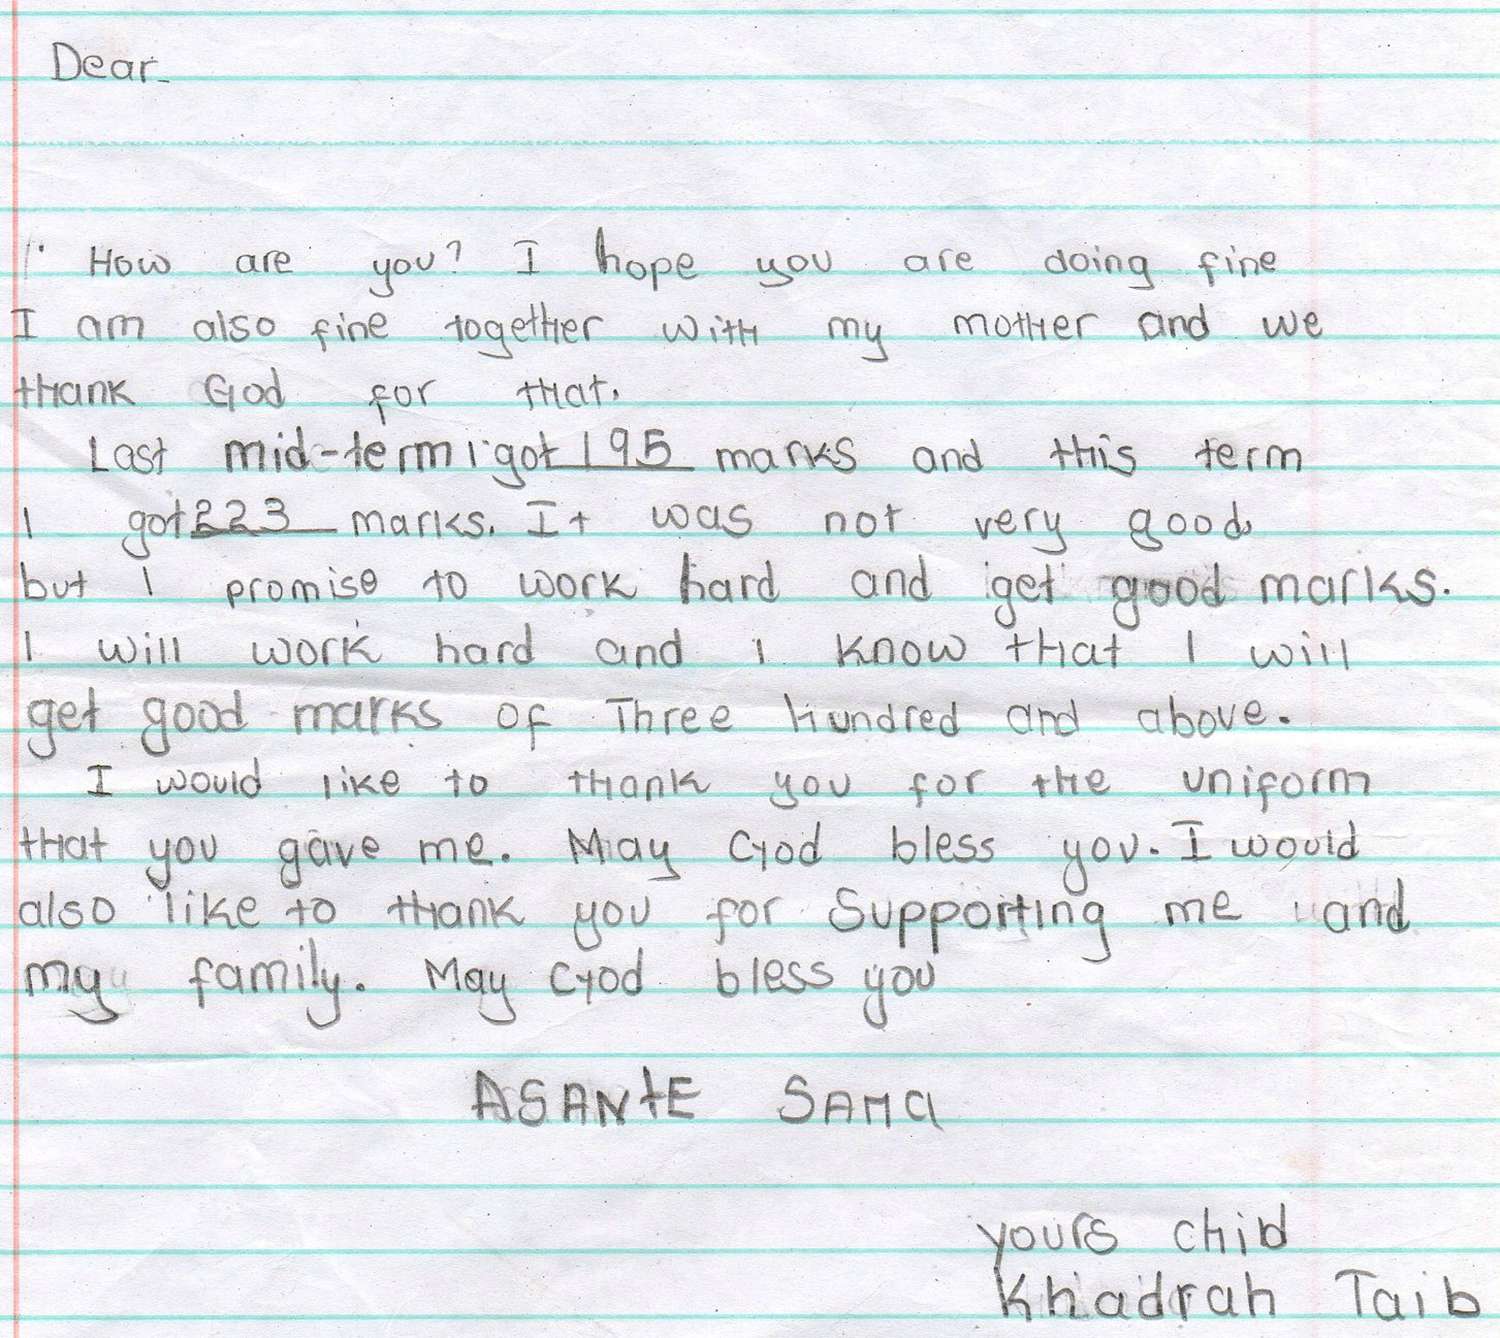 Dear
How are you? I hope you are doing fine
I am also fine together with my mother and we
thank God for that.
Last mid-term I got 195 marks and this term
I got 223 marks. It was not very good
but I promise to work hard and get good marks.
I will work hard and I know that I will
get good marks of Three hundred and above.
I would like to thank you for the uniform
that you gave me. May God bless you. I would
also like to thank you for Supporting me and
my family. May God bless you
ASANtE SAMA
yours chid
Khadrah Taib